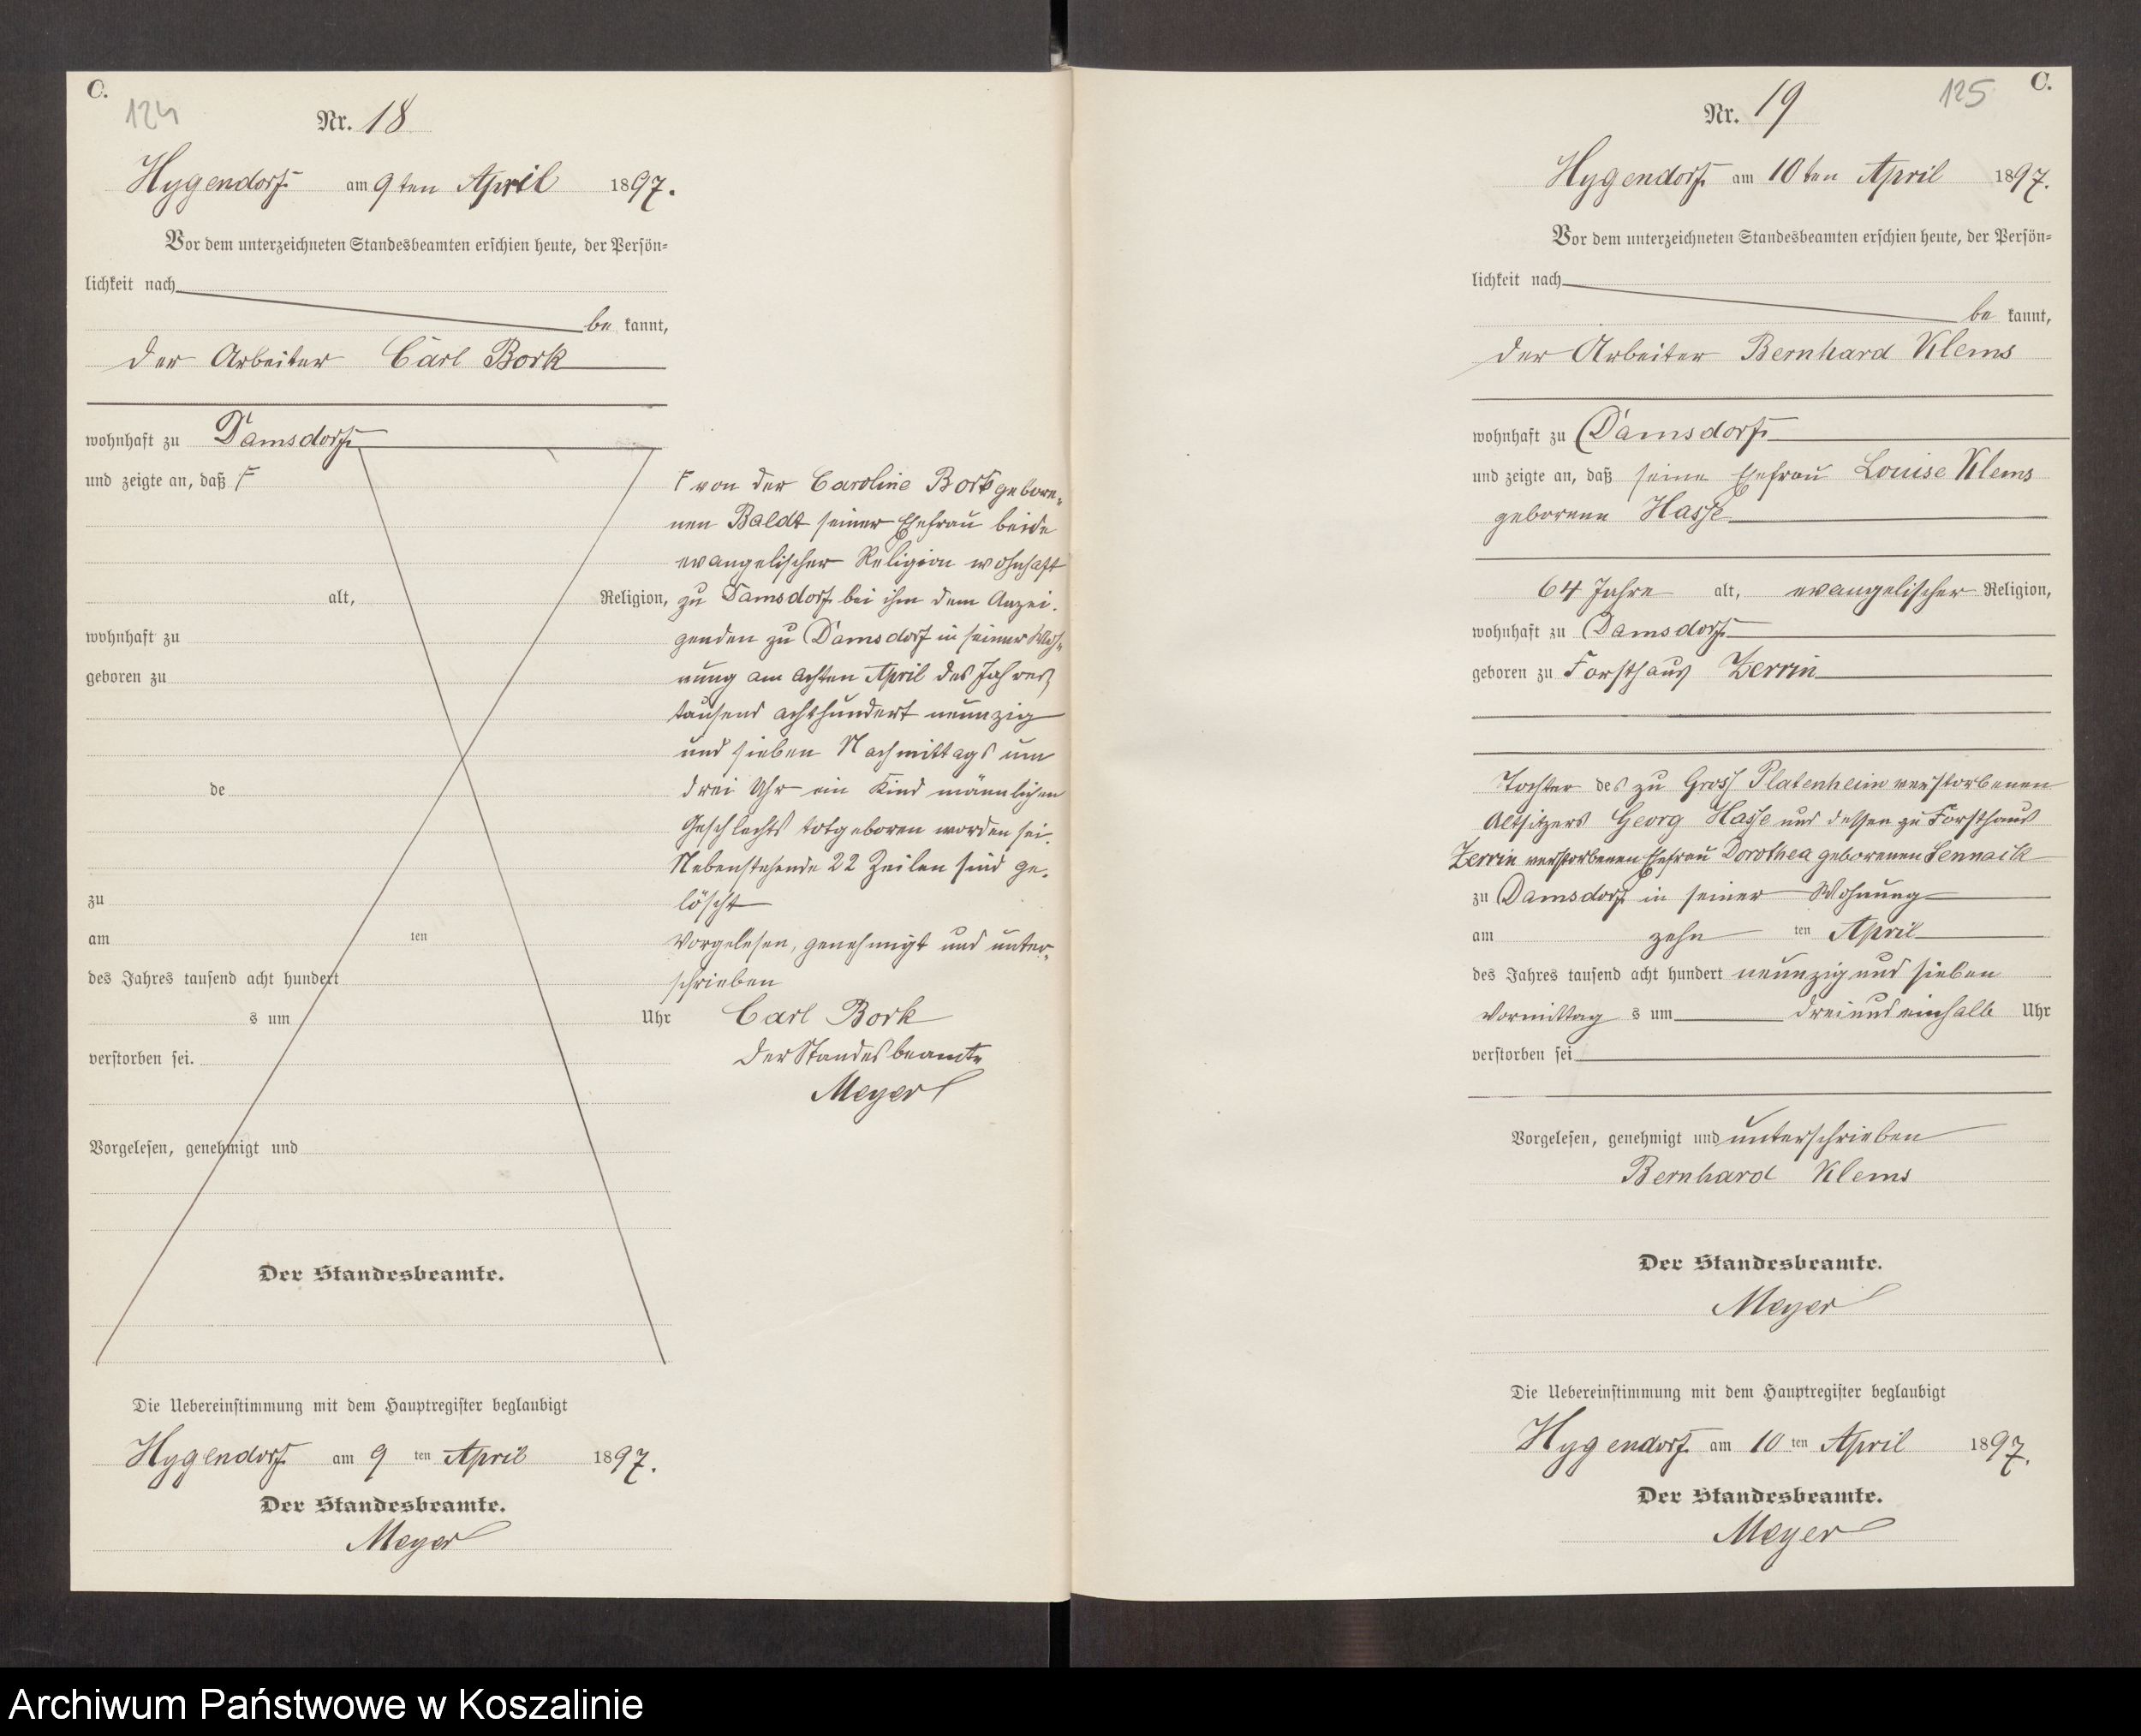 C.
124
Nr. 18
Hygendorf am 9ten April 1897.
Vor dem unterzeichneten Standesbeamten erschien heute, der Persön-
lichkeit nach
be kannt,
der Arbeiter Carl Bork
wohnhaft zu Damsdorf
und zeigte an, daß F
alt, Religion,
wohnhaft zu
geboren zu
de
zu
am ten
des Jahres tausend acht hundert
s um Uhr
verstorben sei.
Vorgelesen, genehmigt und
Der Standesbeamte.
F von der Caroline Bork gebore-
nen Baldt seiner Ehefrau beide
evangelischer Religion wohnhaft
zu Damsdorf bei ihm dem Anzei-
genden zu Damsdorf in seiner Woh-
nung am achten April des Jahres
tausend achthundert neunzig
und sieben Nachmittags um
drei Uhr ein Kind männlichen
Geschlechts totgeboren worden sei.
Nebenstehende 22 Zeilen sind ge-
löscht
Vorgelesen, genehmigt und unter-
schrieben
Carl Bork
Der Standesbeamte
Meyer
Die Uebereinstimmung mit dem Hauptregister beglaubigt
Hygendorf am 9 ten April 1897.
Der Standesbeamte.
Meyer
125
C.
Nr. 19
Hygendorf am 10ten April 1897.
Vor dem unterzeichneten Standesbeamten erschien heute, der Persön-
lichkeit nach
be kannt,
der Arbeiter Bernhard Klems
wohnhaft zu Damsdorf
und zeigte an, daß seine Ehefrau Louise Klems
geborene Hasse
64 Jahre alt, evangelischer Religion,
wohnhaft zu Damsdorf
geboren zu Forsthaus Zerrin
Tochter des zu Gross Platenheim verstorbenen
Altsitzers Georg Hasse und dessen zu Forsthaus
Zerrin verstorbenen Ehefrau Dorothea geborenen
zu Damsdorf in seiner Wohnung
am zehn ten April
des Jahres tausend acht hundert neunzig und sieben
Vormittag s um drei und einhalb Uhr
verstorben sei
Vorgelesen, genehmigt und unterschrieben
Bernhard Klems
Der Standesbeamte.
Meyer
Die Uebereinstimmung mit dem Hauptregister beglaubigt
Hygendorf am 10 ten April 1897.
Der Standesbeamte.
Meyer
Archiwum Państwowe w Koszalinie